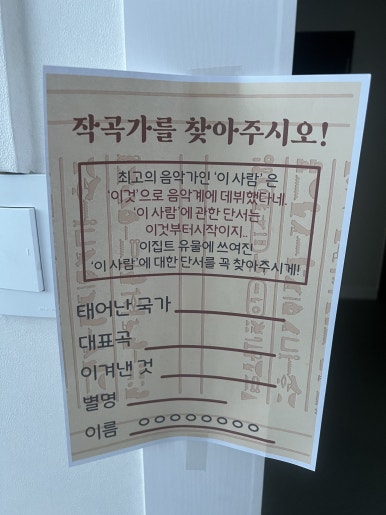 작곡가를 찾아주시오!
최고의 음악가인 '이 사람'은
'이것'으로 음악계에 데뷔했다네.
'이 사람'에 관한 단서는
이것부터시작이지..
이집트 유물에 쓰여진
'이 사람'에 대한 단서를 꼭 찾아주시게!
태어난 국가
대표곡
이겨낸 것
별명
이름 ㅇㅇㅇㅇㅇㅇㅇㅇ